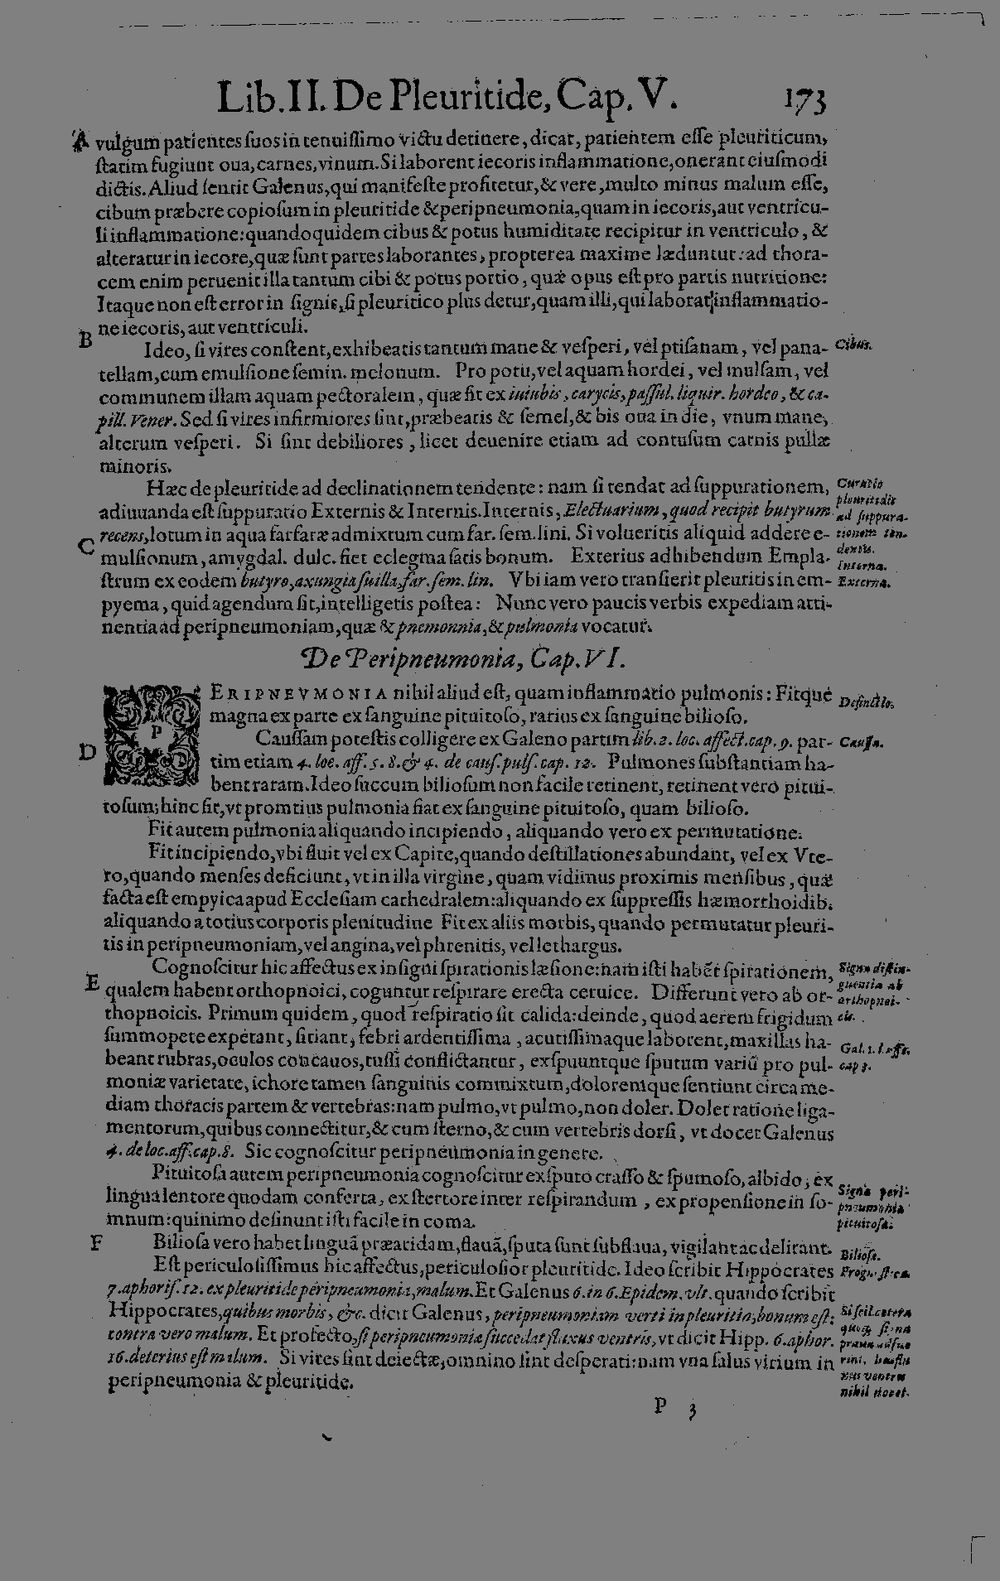 Lib.II. De Pleuritide, Cap. V. 173
A vulgum patientes suos in tenuissimo victu detinere, dicat, patientem esse pleuriticum,
statim fugiunt oua, carnes, vinum. Si laborent iecoris inflammatione, onerant eiusmodi
dictis. Aliud sentit Galenus, qui manifeste profitetur, & vere, multo minus malum esse,
cibum præbere copiosum in pleuritide & peripneumonia, quam in iecoris, aut ventricu-
li inflammatione: quandoquidem cibus & potus humiditate recipitur in ventriculo, &
alteratur in iecore, quæ sunt partes laborantes, propterea maxime læduntur: ad thora-
cem enim peruenit illa tantum cibi & potus portio, quæ opus est pro partis nutritione:
Itaque non est error in signis, si pleuritico plus detur, quam illi, qui laborat inflammatio-
ne iecoris, aut ventriculi.
B
Ideo, si vires constent, exhibeatis tantum mane & vesperi, vel ptisanam, vel pana-
Cibus.
tellam, cum emulsione semin. melonum. Pro potu, vel aquam hordei, vel mulsam, vel
communem illam aquam pectoralem, quæ fit ex iuiubis, carycis, passul. liquir. hordeo, & ca-
pill. Vener. Sed si vires infirmiores sint, præbeatis & semel, & bis oua in die, vnum mane,
alterum vesperi. Si sint debiliores, licet deuenire etiam ad contusum carnis pullæ
minoris.
Hæc de pleuritide ad declinationem tendente: nam si tendat ad suppurationem,
Curatio
pleuritidis
adiuuanda est suppuratio Externis & Internis. Internis, Electuarium, quod recipit butyrum
ad suppura-
C recens, lotum in aqua farfaræ admixtum cum far. sem. lini. Si volueritis aliquid addere e-
tionem ten-
mulsionum, amygdal. dulc. fiet eclegma satis bonum. Exterius adhibendum Empla-
dentis.
Interna.
strum ex eodem butyro, axungia suilla, far. sem. lin. Vbi iam vero transierit pleuritis in em-
Externa.
pyema, quid agendum sit, intelligetis postea: Nunc vero paucis verbis expediam atti-
nentia ad peripneumoniam, quæ & pnemonnia, & pulmonia vocatur.
De Peripneumonia, Cap. VI.
PERIPNEVMONIA nihil aliud est, quam inflammatio pulmonis: Fitque
Definitio.
magna ex parte ex sanguine pituitoso, rarius ex sanguine bilioso.
D
Caussam potestis colligere ex Galeno partim lib. 2. loc. affect. cap. 9. par-
Caussa.
tim etiam 4. loc. aff. 5. 8. & 4. de caus. puls. cap. 12. Pulmones substantiam ha-
bent raram. Ideo succum biliosum non facile retinent, retinent vero pitui-
tosum; hinc fit, vt promtius pulmonia fiat ex sanguine pituitoso, quam bilioso.
Fit autem pulmonia aliquando incipiendo, aliquando vero ex permutatione.
Fit incipiendo, vbi fluit vel ex Capite, quando destillationes abundant, vel ex Vte-
ro, quando menses deficiunt, vt in illa virgine, quam vidimus proximis mensibus, quæ
facta est empyica apud Ecclesiam cathedralem: aliquando ex suppressis hæmorrhoidib.
aliquando a totius corporis plenitudine Fit ex aliis morbis, quando permutatur pleuri-
tis in peripneumoniam, vel angina, vel phrenitis, vel lethargus.
Cognoscitur hic affectus ex insigni spirationis læsione: nam isti habēt spirationem,
Signa distin-
E qualem habent orthopnoici, coguntur respirare erecta ceruice. Differunt vero ab or-
guentia ab
orthopnoi-
thopnoicis. Primum quidem, quod respiratio sit calida: deinde, quod aerem frigidum
cis.
summopere expetant, sitiant, febri ardentissima, acutissimaque laborent, maxillas ha-
Gal. 1. l. aff.
beant rubras, oculos concauos, tussi conflictantur, exspuuntque sputum variū pro pul-
cap 3.
moniæ varietate, ichore tamen sanguinis commixtum, doloremque sentiunt circa me-
diam thoracis partem & vertebras: nam pulmo, vt pulmo, non dolet. Dolet ratione liga-
mentorum, quibus connectitur, & cum sterno, & cum vertebris dorsi, vt docet Galenus
4. de loc. aff. cap. 8. Sic cognoscitur peripneumonia in genere.
Pituitosa autem peripneumonia cognoscitur ex sputo crasso & spumoso, albido, ex
Signa peri-
lingua lentore quodam conferta, ex stertore inter respirandum, ex propensione in so-
pneumoniæ
mnum: quinimo desinunt isti facile in coma.
pituitosæ.
F
Biliosa vero habet linguā præaridam, flauā, sputa sunt subflaua, vigilant ac delirant.
Biliosæ.
Est periculosissimus hic affectus, periculosior pleuritide. Ideo scribit Hippocrates
7. aphoris. 12. ex pleuritide peripneumonia, malum. Et Galenus 6. in 6. Epidem. vlt. quando scribit
Hippocrates, quibus morbis, &c. dicit Galenus, peripneumoniam verti in pleuritin, bonum est:
Si scil. cætera
contra vero malum. Et profecto, si peripneumoniæ succedat fluxus ventris, vt dicit Hipp. 6. aphor.
16. deterius est malum. Si vires sint deiectæ, omnino sint desperati: nam vna salus virium in
peripneumonia & pleuritide.
nihil nocet.
P 3